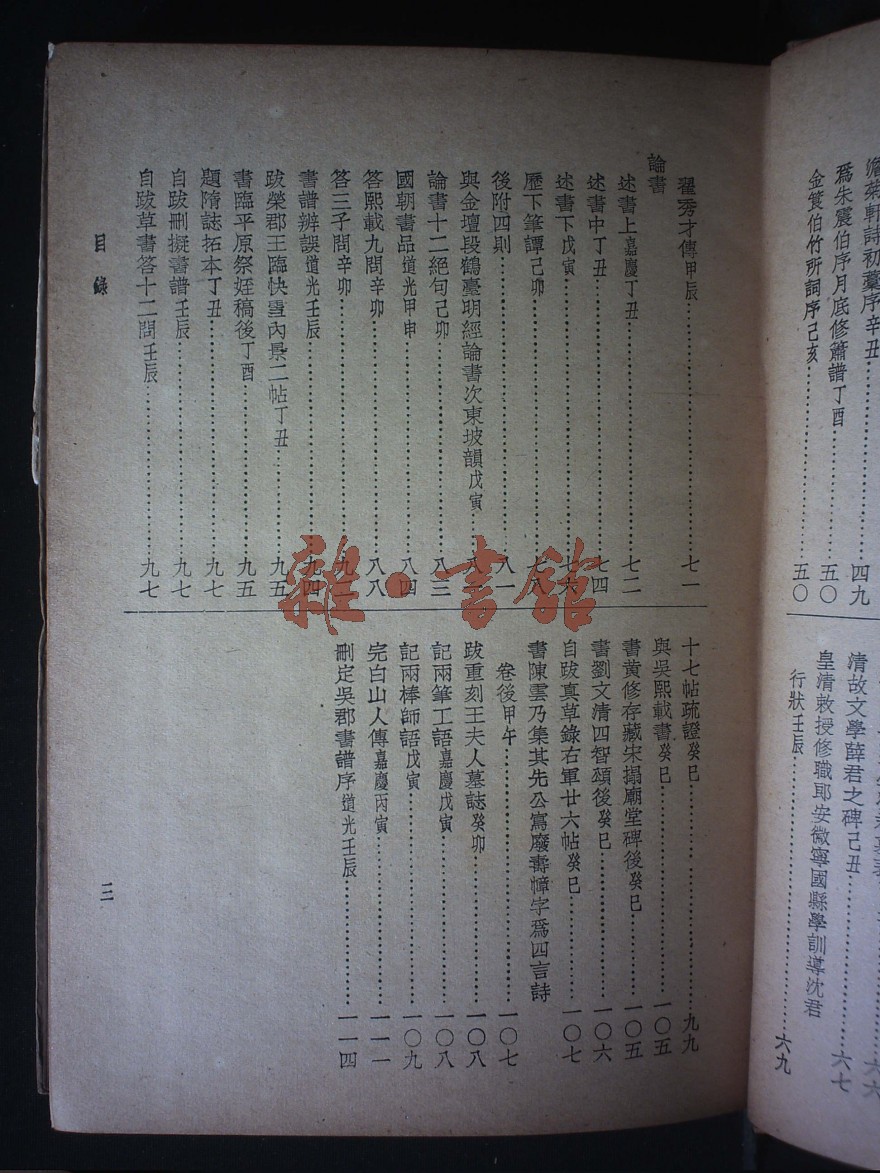 爲朱震伯序月底修簫譜丁酉……五〇
金筤伯竹所詞序己亥……五〇
清故文學薛君之碑己丑……六七
皇清敕授修職郎安徽寧國縣學訓導沈君
行狀壬辰……六九
翟秀才傳甲辰……七一
論書
述書上嘉慶丁丑……七二
述書中丁丑……七四
述書下戊寅……七六
歷下筆譚己卯……七八
後附四則……八一
與金壇段鶴臺明經論書次東坡韻戊寅……八二
論書十二絕句己卯……八三
國朝書品道光甲申……八四
答熙載九問辛卯……八八
答三子問辛卯……九二
書譜辨誤道光壬辰……九四
跋榮郡王臨快雪內景二帖丁丑……九五
書臨平原祭姪稿後丁酉……九五
題隋誌拓本丁丑……九七
自跋刪擬書譜壬辰……九七
自跋草書答十二問壬辰……九七
十七帖疏證癸巳……九九
與吳熙載書癸巳……一〇五
書黃修存藏宋搨廟堂碑後癸巳……一〇五
書劉文清四智頌後癸巳……一〇六
自跋真草錄右軍廿六帖癸巳……一〇七
書陳雲乃集其先公寫廢壽幛字爲四言詩
卷後甲午……一〇七
跋重刻王夫人墓誌癸卯……一〇八
記兩筆工語嘉慶戊寅……一〇八
記兩棒師語戊寅……一〇九
完白山人傳嘉慶丙寅……一一一
刪定吳郡書譜序道光壬辰……一一四
目錄
三
雜·書館